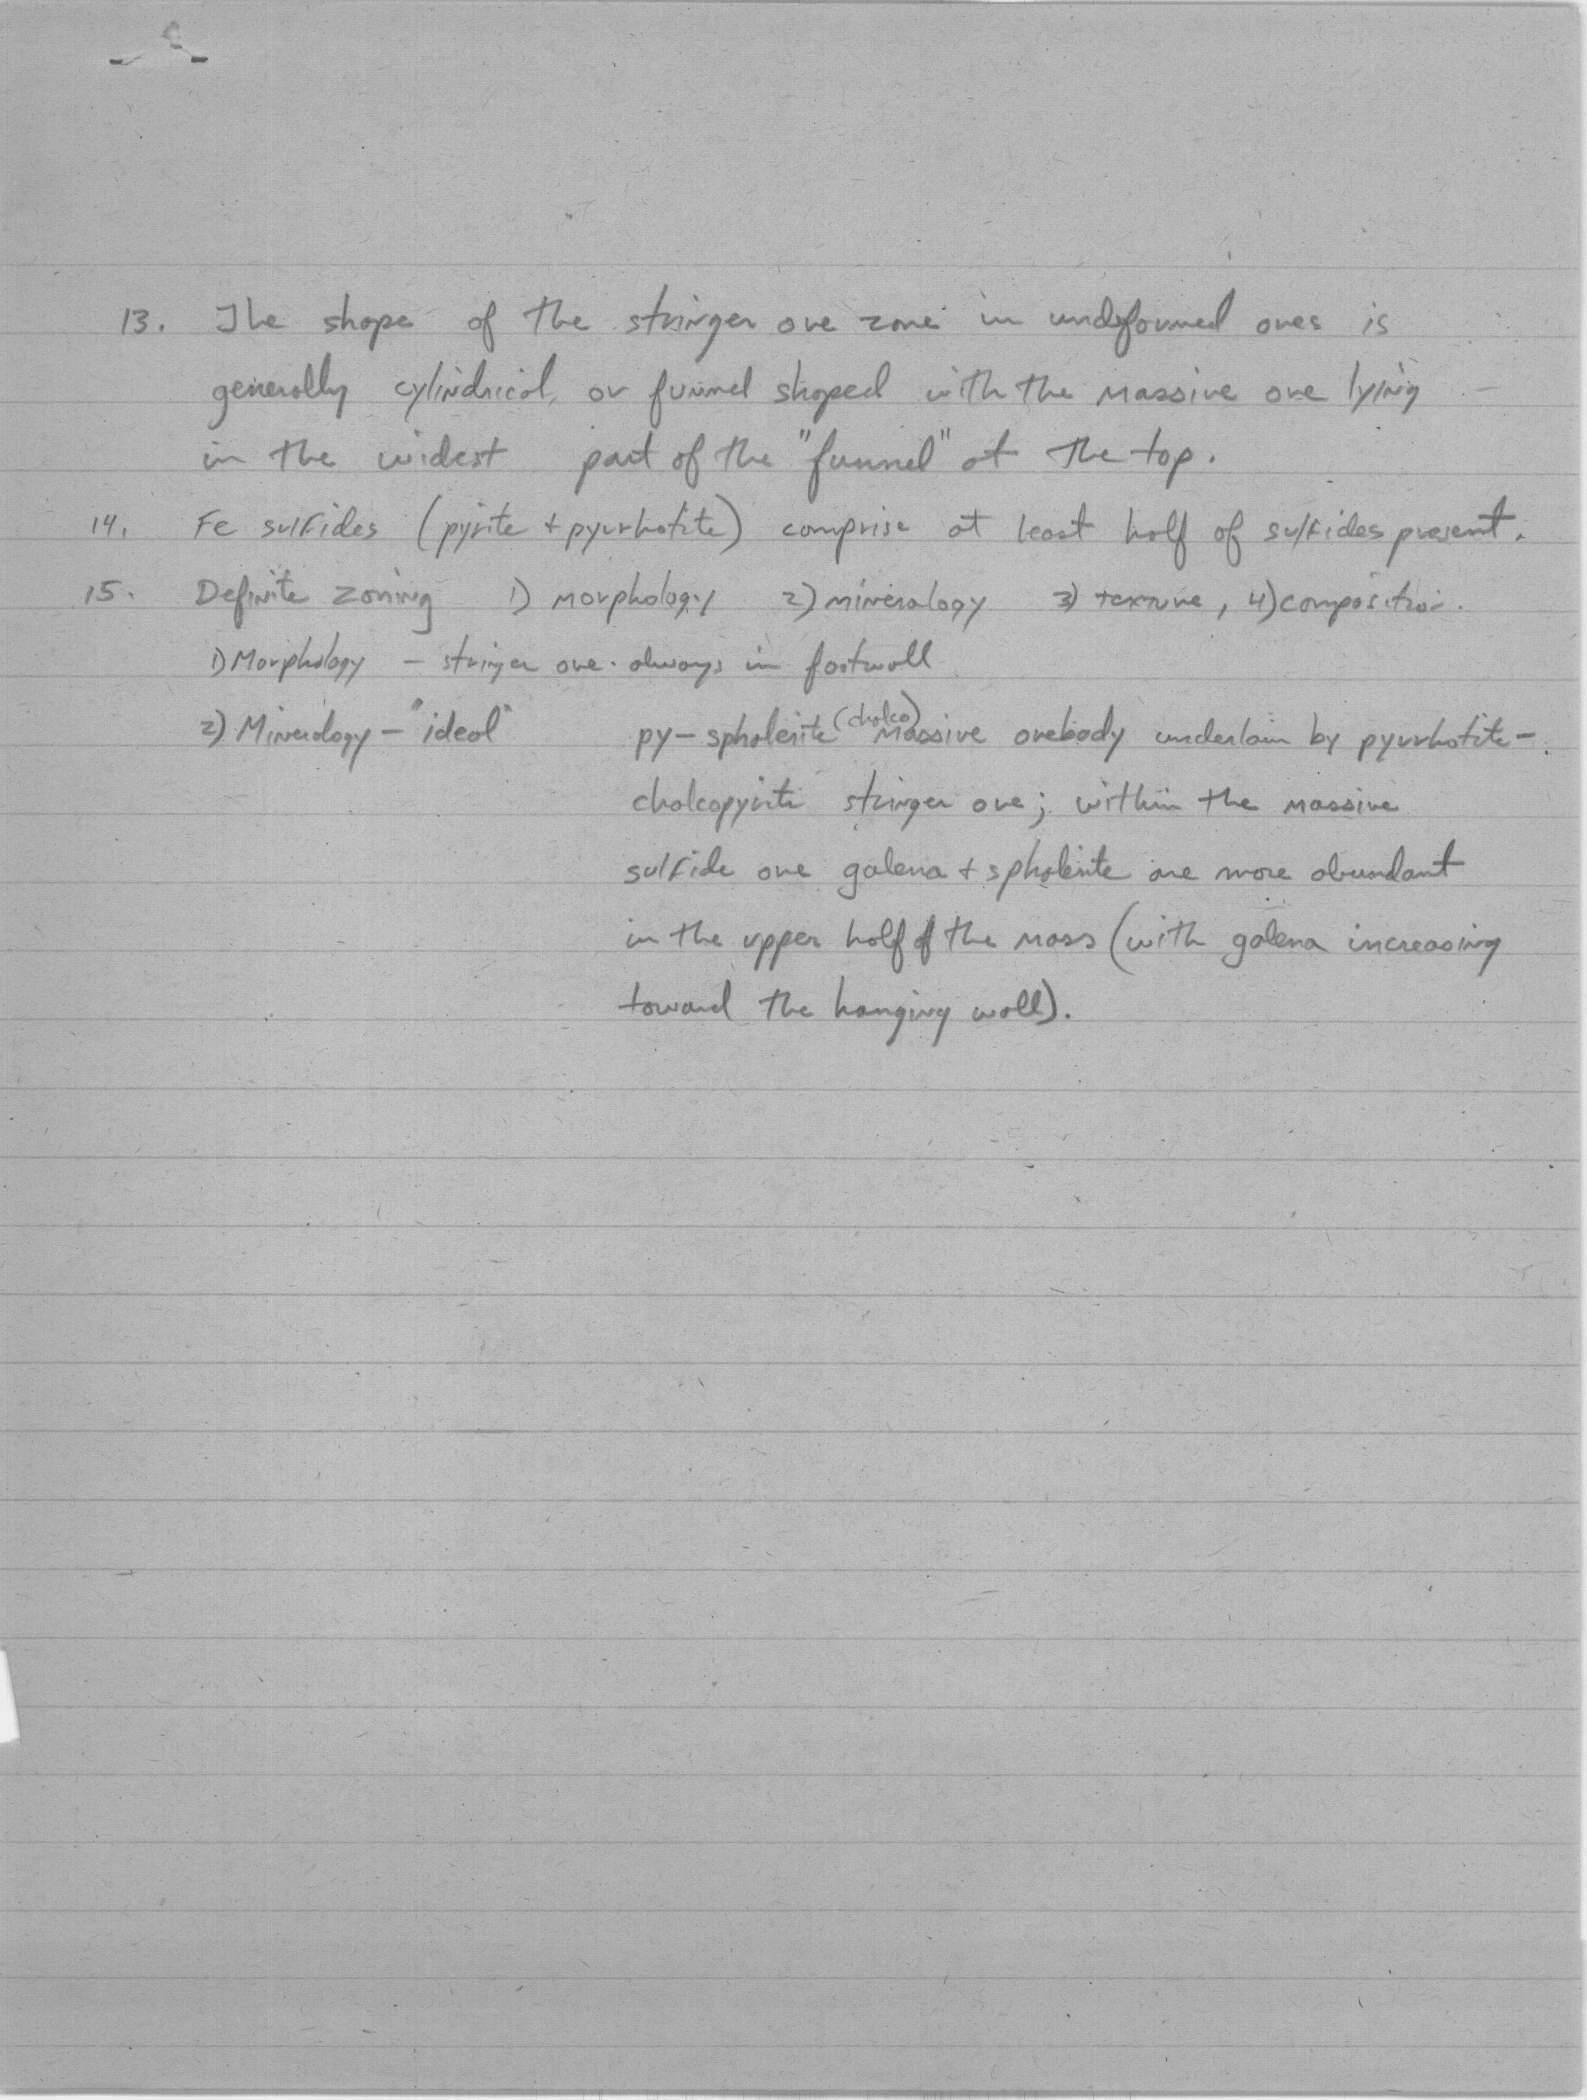 13. The shape of the stringer ore zone in undeformed ores is
generally cylindrical, or funnel shaped with the massive ore lying
in the widest part of the "funnel" at the top.
14. Fe sulfides (pyrite + pyrrhotite) comprise at least half of sulfides present.
15. Definite zoning 1) morphology 2) mineralogy 3) texture, 4) composition.
1) Morphology - stringer ore always in footwall
2) Minerology - "ideal" py-sphalerite (chalco) massive orebody underlain by pyrrhotite-
chalcopyrite stringer ore; within the massive
sulfide ore galena + sphalerite are more abundant
in the upper half of the mass (with galena increasing
toward the hanging wall).